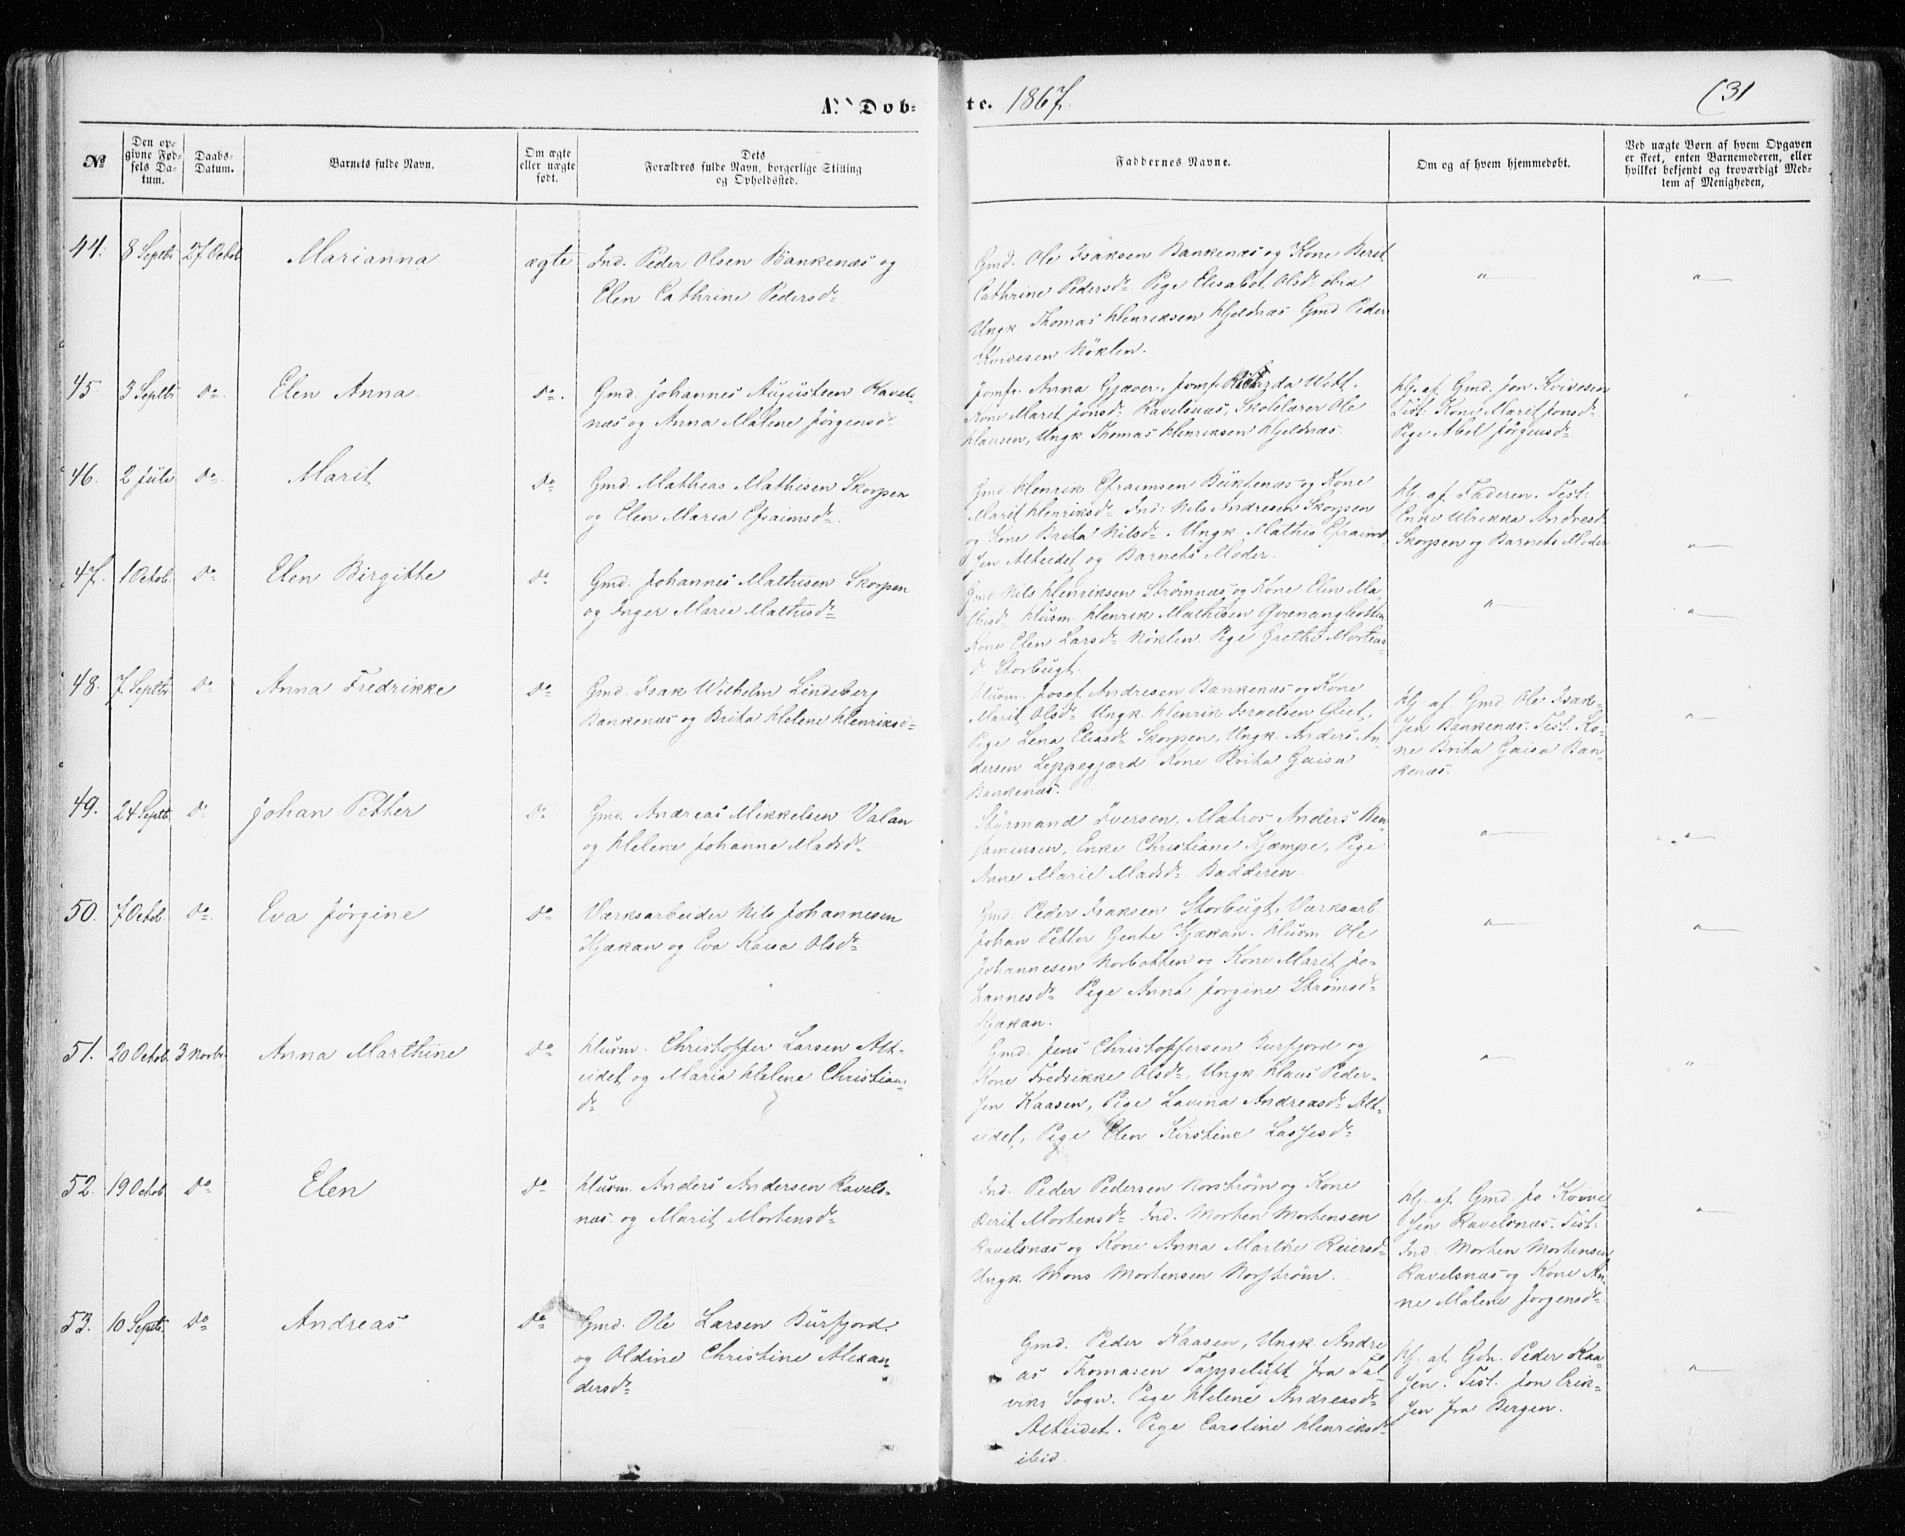 A. Døb-
te. 1867.
(31
№
Den op-
givne Fød-
sels Da-
tum.
Daabs-
Datum.
Barnets fulde Navn.
Om ægte
eller uægte
født.
Dets
Forældres fulde Navn, borgerlige Stilling
og Opholdssted.
Faddernes Navne.
Om og af hvem hjemmedøbt.
Ved uægte Børn af hvem Opgaven
er skeet, enten Barnemoderen, eller
hvilket bekjendt og troværdigt Med-
lem af Menigheden,
44. 8 Septbr. 27 Octob. Marianna ægte Ind. Peder Olsen Bankenæs og
Elen Cathrine Pedersdr
Gmd. Ole Isaksen Bankenæs og Kone Berit
Cathrine Pedersdr Pige Elisabet Olsdr ibid
Ungk. Thomas Henriksen Kjeldnæs Gmd Peder
Nöklen.
"
"
45 3 Septbr. do. Elen Anna do. Gmd. Johannes Augustsen Ravels-
næs og Anna Malene Jørgensdr
Jomfr. Anna Gjæver, Jomfr. Witt.
Kone Marit Jonsdr Ravelsnæs, Skolelærer Ole
Hansen, Ungk Thomas Henriksen Kjeldnæs.
Hj. af Gmd. Jon Kvivesen
Test. Kone Marit Jonsdr
Pige Abel Jørgensdr
"
46. 2 Juli do. Marit do Gmd. Mathias Mathisen Skorpen
og Elen Maria Efraimsdr.
Gmd Henrik Efraimsen Buktenæs og Kone
Marit Henriksdr Ind: Nils Andresen Skorpen
og Kone Brita Nilsdr. Ungk. Mathis Efraim-
sen Alteidet og Barnets Moder.
Hj. af Faderen. Test:
Enke Ulrikka Andresd
Skorpen og Barnets Moder
"
47. 1 Octob. do Elen Birgitte do Gmd. Johannes Mathisen Skorpen
og Inger Marie Mathisdr
Gmd. Nils Henriksen Strømnæs og Kone Elen Ma-
thisdr Husm. Henrik Mathisen Qvenangbotn
Kone Elen Larsdr Nöklen. Pige Grethe Mortens-
dr Storbugt.
"
"
48. 7 Septbr. do Anna Fredrikke do Gmd. Isak Wilhelm Lindeberg
Bankenæs og Brita Helene Henriksdr
Husm. Josef Andresen Bankenæs og Kone
Marit Olsdr Ungk. Henrik Israelsen Olset,
Pige Lena Eliasdr Skorpen, Ungk. Anders An-
dersen Leppegjærd Kone Brita Gaisa
Bankenæs.
Hj af Gmd Ole Isak-
sen Bankenæs. Test. Ko-
ne Brita Gaisa Ban-
kenæs.
"
49. 24 Septb. do Johan Petter do. Gmd. Andreas Mikkelsen Valan
og Helene Johanne Madsdr
Styrmand Iversen, Matros Anders Ben-
jamensen, Enke Christiane Kjæmpe, Pige
Anne Marie Madsdr Badderen.
"
"
50. 7 Octob. do. Eva Jørgine do Værksarbeider Nils Johannesen
Kjækan og Eva Kaisa Olsdr
Gmd. Peder Isaksen Storbugt, Værksarb
Johan Petter Gente Kjækan. Husm. Ole
Johannesen Norbotten og Kone Marit Jo-
hannesdr Pige Anna Jørgine Strømsdr
Kjækan.
"
"
51. 20 Octob. 3 Novbr. Anna Marthine do Husm. Christoffer Larsen Alt-
eidet og Maria Helene Christian-
dr
Gmd. Jens Christoffersen Burfjord og
Kone Fredrikke Olsdr, Ungk. Klaus Peder-
sen Kaasen, Pige Lavina Andreasdr Alt-
eidet, Pige Elen Kirstine Lassesdr.
"
"
52. 19 Octob do Elen do Husm. Anders Andersen Ravels-
næs og Marit Mortensdr
Ind. Peder Pedersen Norstrøm og Kone
Berit Mortensdr Ind. Morten Mortensen
Ravelsnæs og Kone Anna Marthe Reiersdr
Ungk Mons Mortensen Norstrøm.
Hj. af Gmd. Jo Kvive-
sen Ravelsnæs. Test.
Ind. Morten Mortensen
Ravelsnæs og Kone An-
ne Malene Jørgensdr
"
53. 10 Septbr. do Andreas do Gmd. Ole Larsen Burfjord.
og Oldine Christine Alexan-
dersdr
Gmd. Peder Kaasen, Ungk. Andre-
as Thomasen Tappeluft fra Tal-
viks Sogn. Pige Helene Andreasdr
Alteidet. Pige Caroline Henriksdr
ibid.
Hj. af Gdr. Peder Kaa-
sen. Test. Jon Erik-
sen fra Bergen.
"